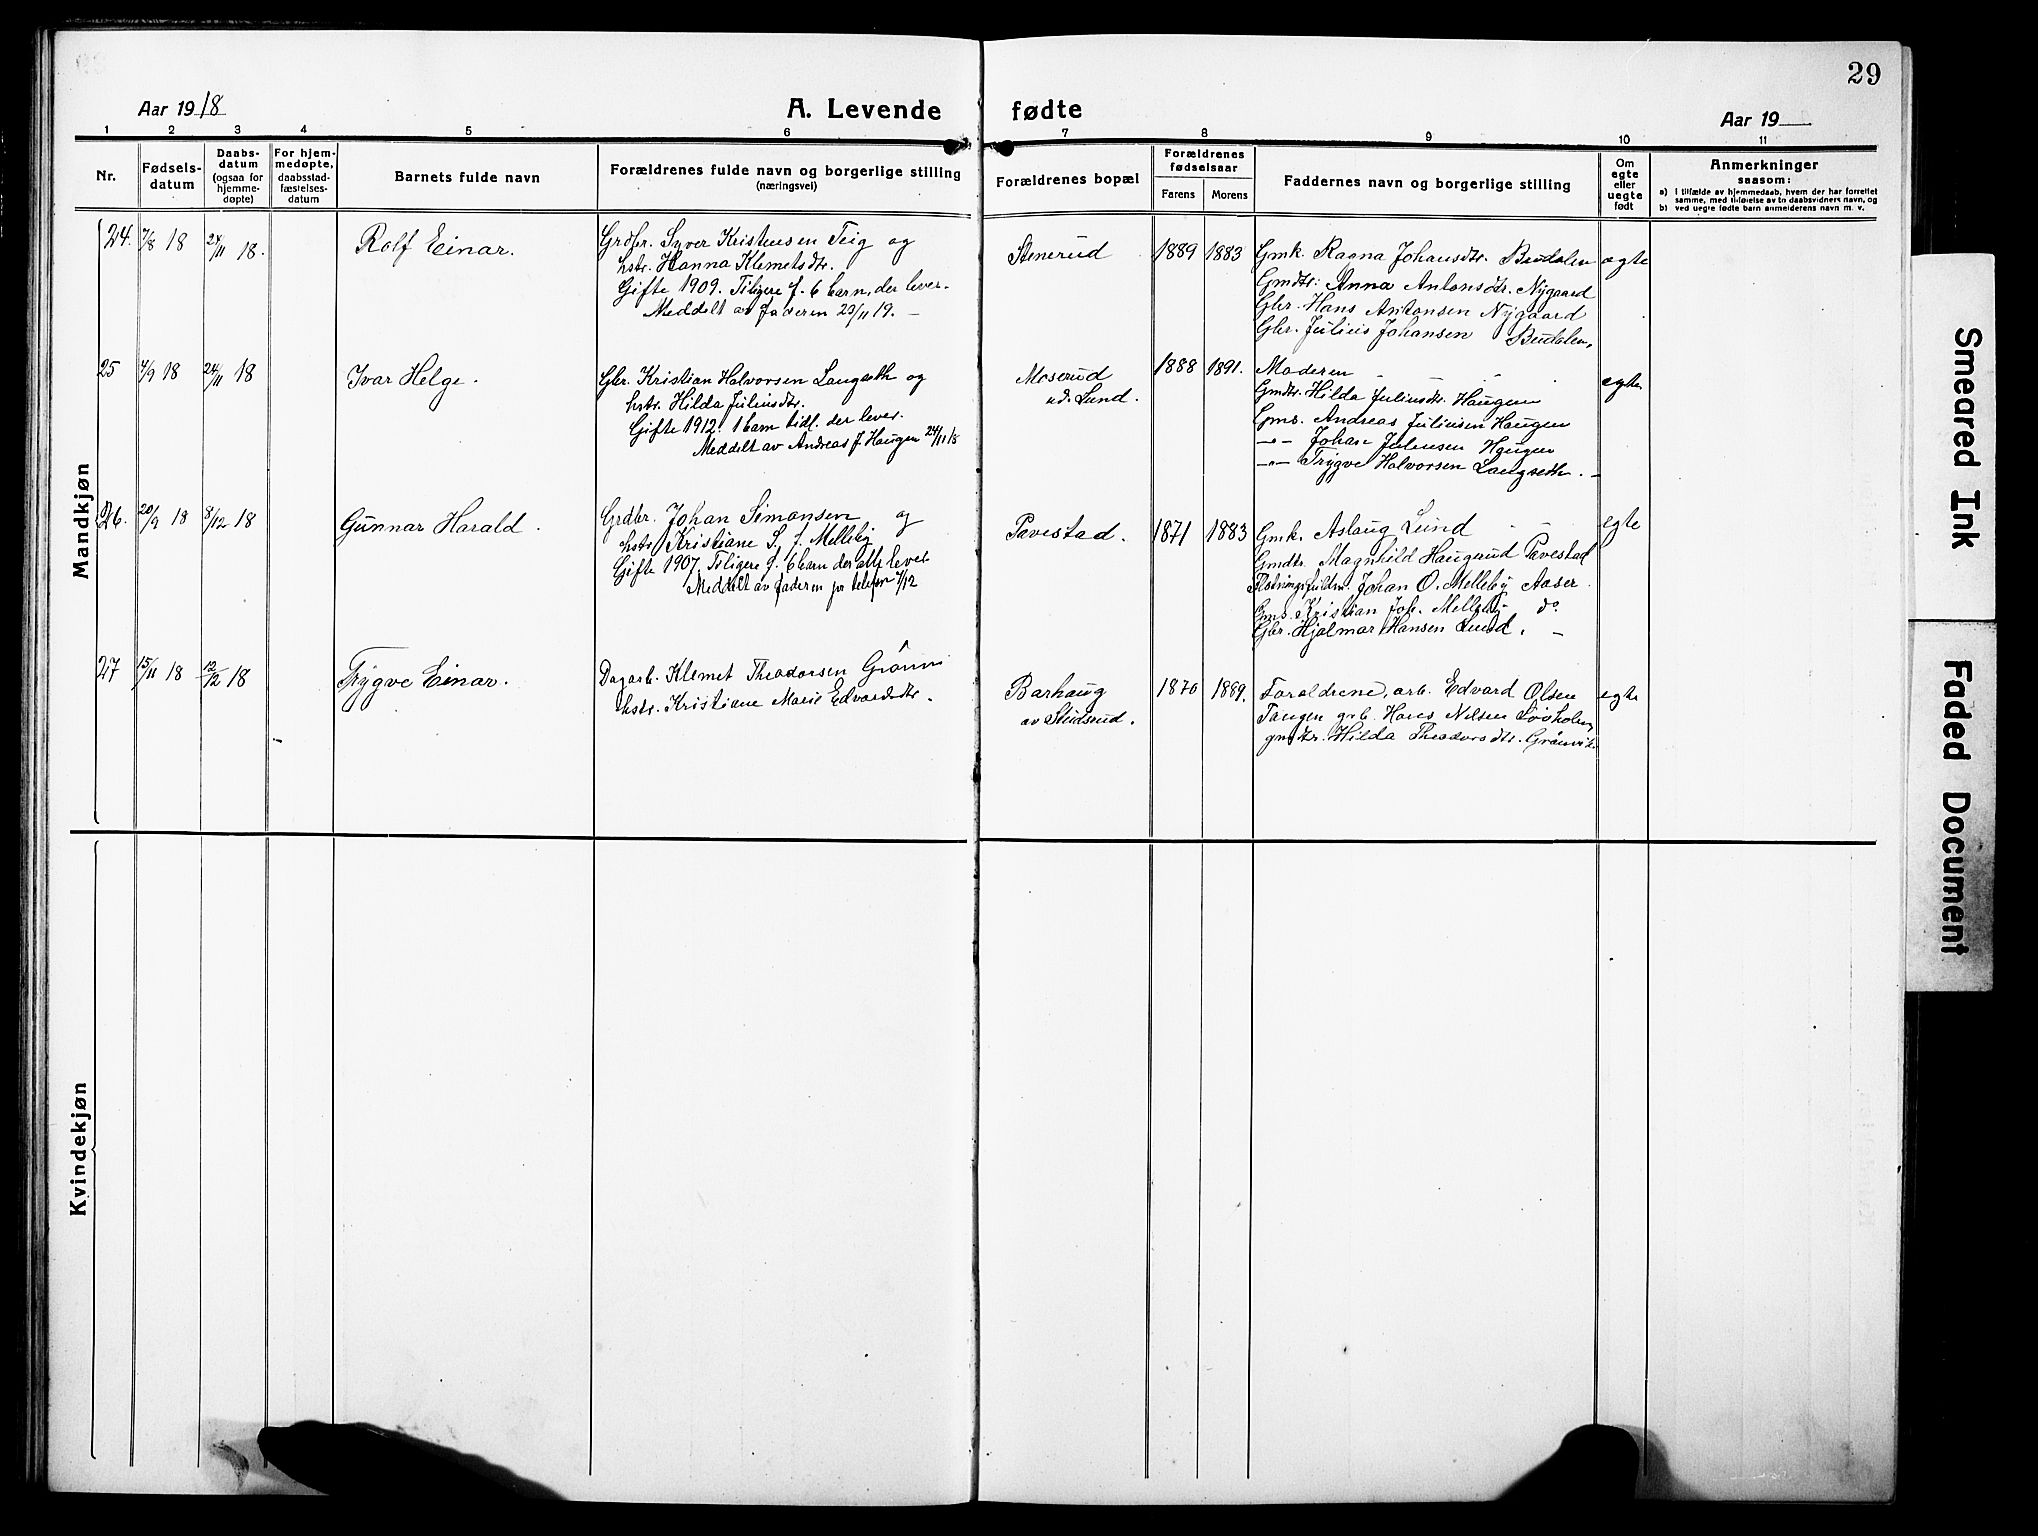 29
Aar 1918
A. Levende fødte
Aar 19
1 2 3 4 5 6 7 8 9 10 11
Nr.
Fødsels-
datum
Daabs-
datum
(ogsaa for
hjemme-
døpte)
For hjem-
medøpte,
daabsstad-
fæstelses-
datum
Barnets fulde navn
Forældrenes fulde navn og borgerlige stilling
(næringsvei)
Forældrenes bopæl
Forældrenes
fødselsaar
Farens Morens
Faddernes navn og borgerlige stilling
Om
egte
eller
uegte
født
Anmerkninger
saasom:
a) i tilfælde av hjemmedaab, hvem der har forrettet
samme, med tilføielse av to daabsvidners navn, og
b) ved uegte fødte barn anmelderens navn m. v.
Mandkjøn
24. 7/8 18 24/11 18. Rolf Einar.
Grdbr. Syver Kristensen Teig og
hstr. Hanna Klemetsdtr.
Gifte 1909. Tiligere f. 6 barn, der lever.
Meddelt av faderen 23/11 19. –
Stenerud 1889 1883
Gmk. Ragna Johansdtr. Budalen
Gmdtr. Anna Antonsdtr. Nygaard
Gbr. Hans Antonsen Nygaard
Gbr. Julius Johansen Budalen,
egte
25 7/9 18 24/11 18 Ivar Helge.
Gbr. Kristian Halvorsen Langseth og
hstr. Hilda Juliusdtr.
Gifte 1912. 1 barn tidl. der lever.
Meddelt av Andreas J. Haugen 24/11 18
Moserud
u. Lund.
1888 1891.
Moderen
Gmdtr. Hilda Juliusdtr. Haugen
Gms. Andreas Juliusen Haugen
–"– Johan Juliusen Haugen
–"– Trygve Halvorsen Langseth. –
egte
26. 20/9 18 8/12 18 Gunnar Harald.
Grdbr. Johan Simonsen og
hstr. Kristiane S. f. Melleby
Gifte 1907. Tiligere f. 6 barn der alle lever
Meddelt av faderen pr telefon 7/12
Pavestad. 1871 1883
Gmk. Aslaug Lund "
Gmdtr. Magnhild Haugerud Pavestad
Johan O. Melleby Aaser.
Gms. Kristian Joh. Melleby do
Gbr. Hjalmar Hansen Lund. –
egte
27 15/11 18 12/12 18 Trygve Einar.
Dagarb. Klemet Theodorsen
hstr. Kristiane Marie Edvardsdtr.
Barhaug
av Studsrud.
1870 1889.
Forældrene, arb. Edvard Olsen
Tangen grb. Hans Nilsen Løvholen,
gmdtr. Hilda Theodorsdtr. Grønvik
egte
Kvindekjøn
Smeared Ink
Faded Document